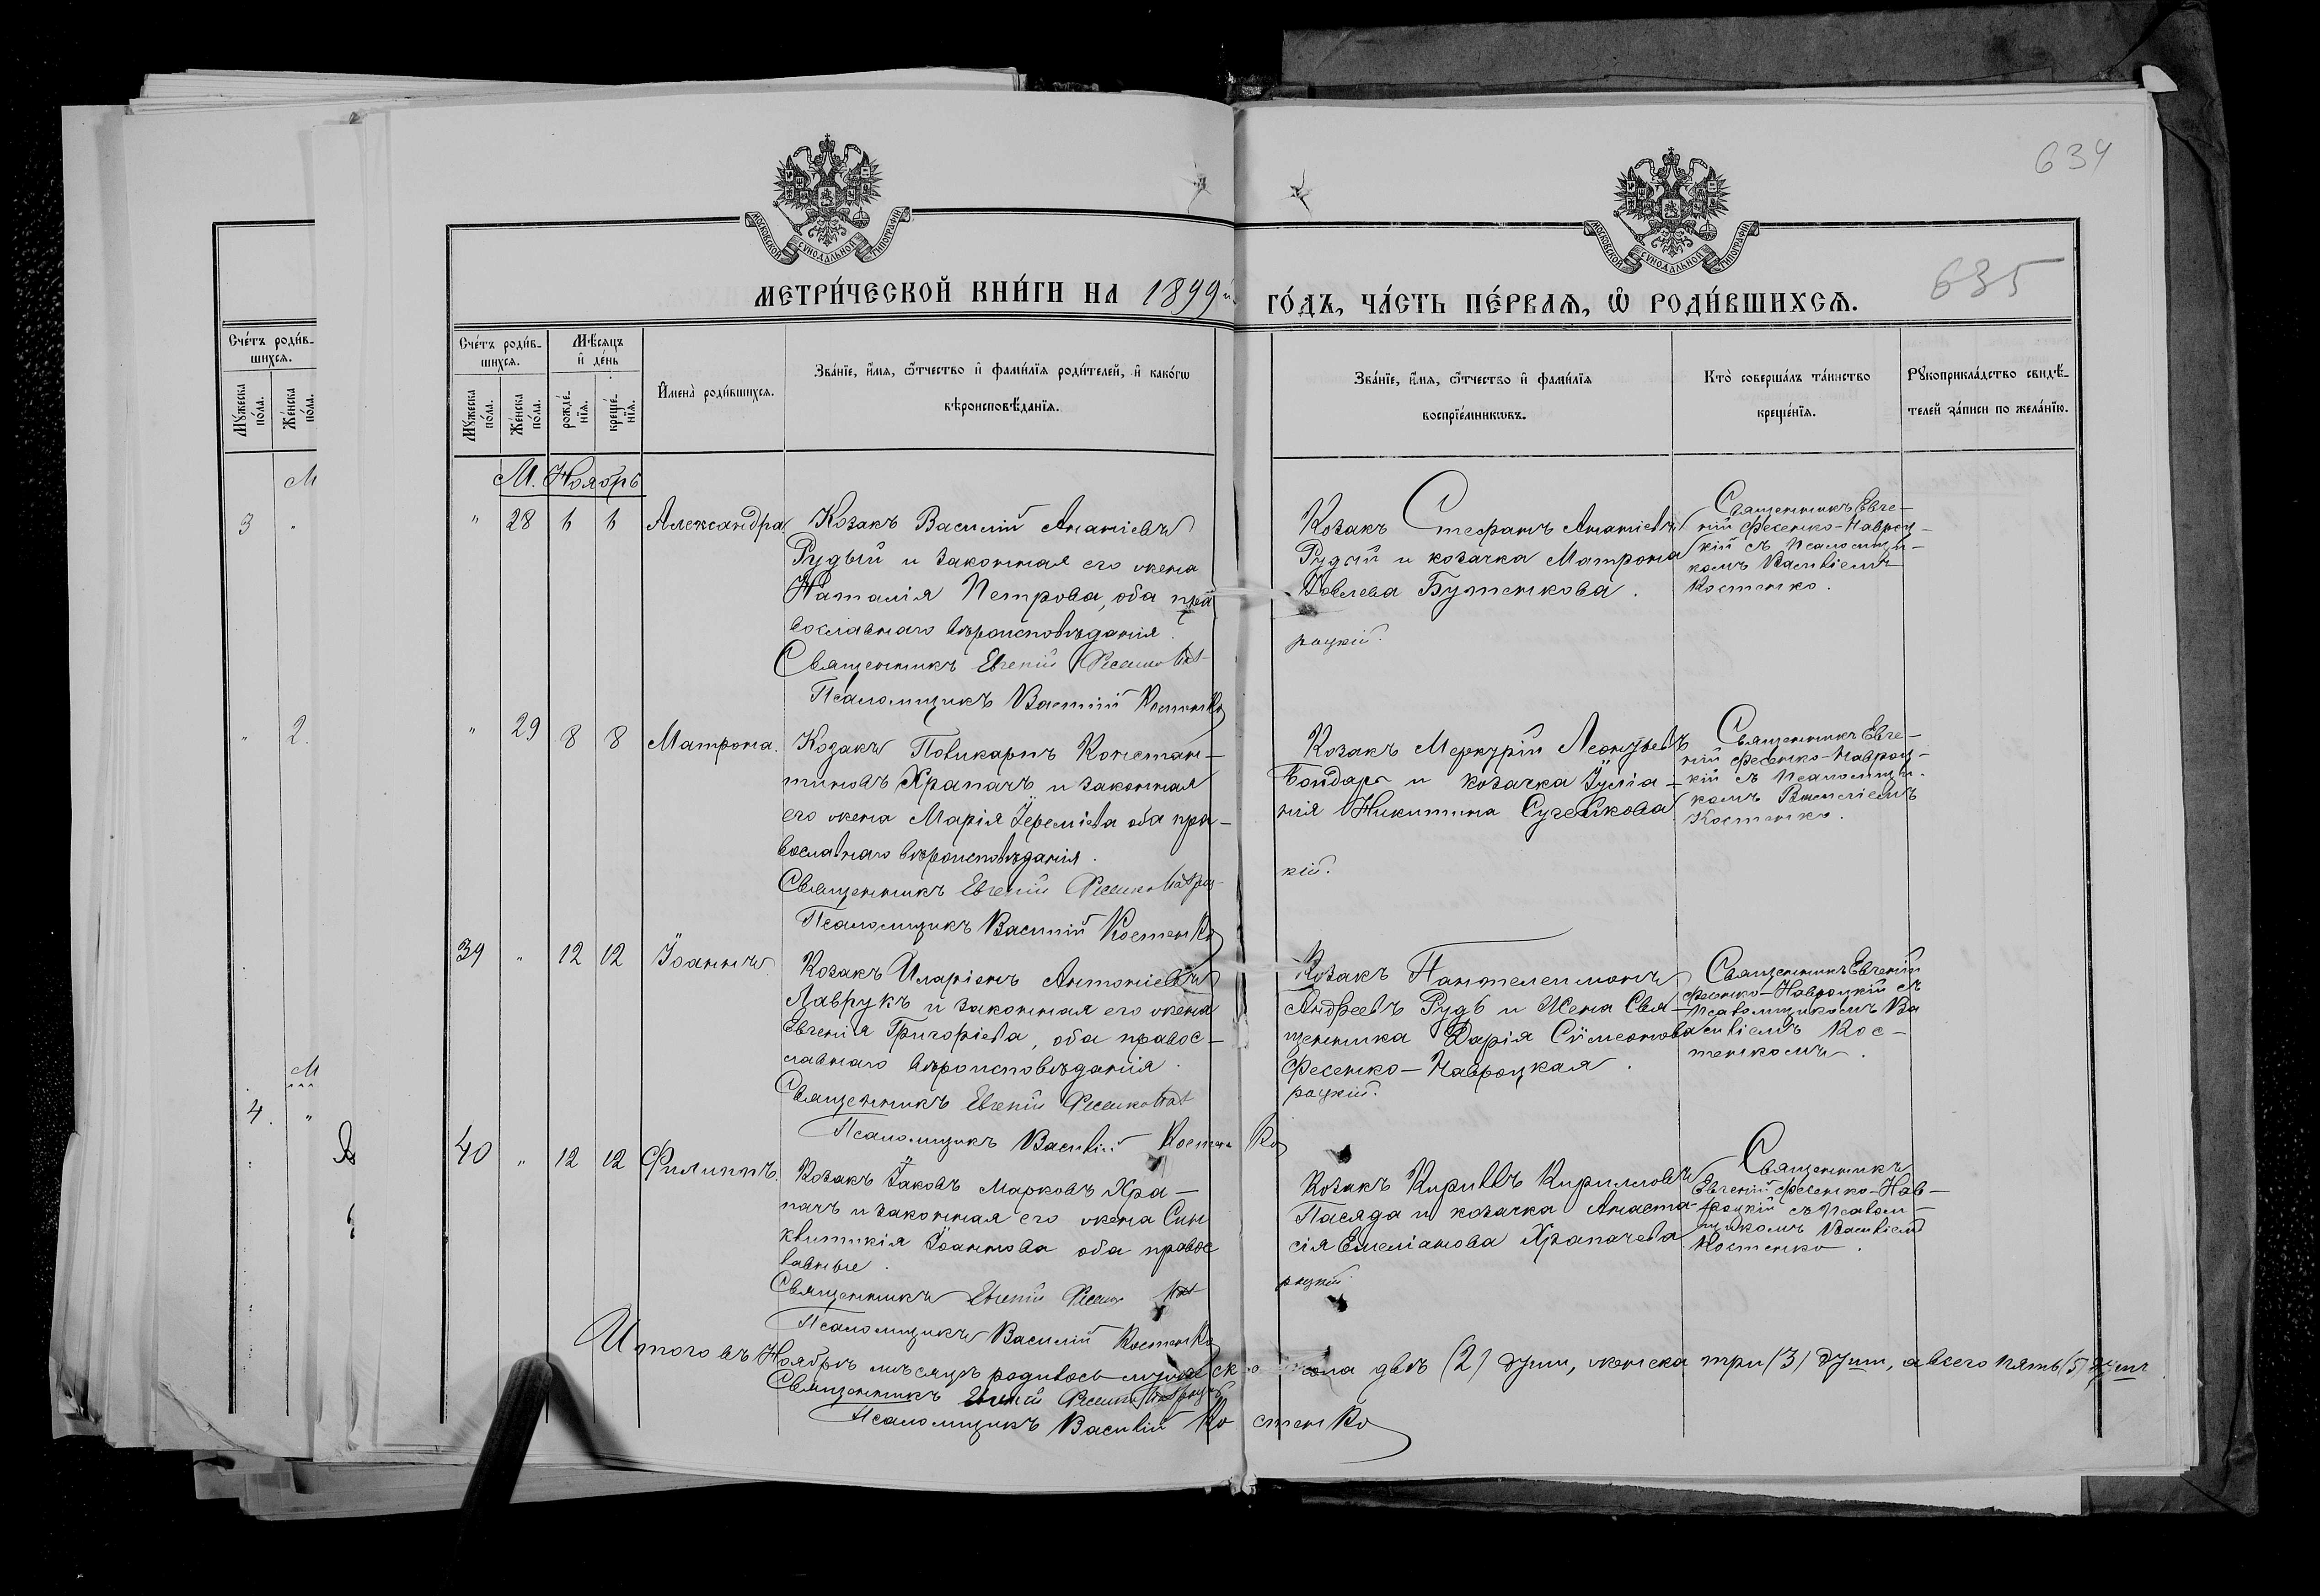 634
635
МОСКОВСКОЙ СѴНОДАЛЬНОЙ ТИПОГРАФІИ
МОСКОВСКОЙ СѴНОДАЛЬНОЙ ТИПОГРАФІИ
МЕТРИ́ЧЕСКОЙ КНИ́ГИ НА 1899й
ГО́ДЪ, ЧА́СТЬ ПЕ́РВАѦ, Ѡ҆ РОДИ́ВШИХСѦ.
Сче́тъ роди́в-
шихсѧ.
Мꙋ́жеска по́ла.
Же́нска по́ла.
3 "
" 2.
4. "
Сче́тъ роди́в-
шихсѧ.
Мꙋ́жеска по́ла.
Же́нска по́ла.
Мѣ́сѧцъ
и҆ де́нь
рожде́-
нїѧ.
креще́-
нїѧ.
И҆мена̀ роди́вшихсѧ.
Зва́нїе, и҆́мѧ, ѻ҆́тчество и҆ фами́лїѧ роди́телей, и҆ како́гѡ
вѣроисповѣ́данїѧ.
Зва́нїе, и҆́мѧ, ѻ҆́тчество и҆ фами́лїѧ
воспрїе́мникѡвъ.
Кто̀ соверша́лъ та́инство
креще́нїѧ.
Рꙋкоприкла́дство свидѣ́-
телей за́писи по жела́нїю.
М. Ноябрь
" 28 6 6 Александра.
Козакъ Василій Ананіевъ
Рудый и законная его жена
Наталія Петрова, оба пра
вославнаго вѣроисповѣданія.
Священникъ Евгеній Фесенко Нав
роцкій.
Псаломщикъ Василій Костенко
Козакъ Стефанъ Ананіевъ
Рудый и козачка Матрона
Іовлева Бутенкова.
Священникъ Евге-
ній Фесенко-Навроц-
кій съ псаломщи-
комъ Василіемъ
Костенко.
" 29 8 8 Матрона.
Козакъ Поликарпъ Констан-
тиновъ Храпачъ и законная
его жена Марія Іереміева оба пра-
вославнаго вѣроисповѣданія.
Священникъ Евгеній Фесенко Навроц-
кій.
Псаломщикъ Василій Костенко
Козакъ Меркурій Леонтіевъ
Бондарь и козачка Іуліа-
нія Никитина
Священникъ Евге-
ній Фесенко-Навроц-
кій съ псаломщи-
комъ Василіемъ
Костенко.
39 " 12 12 Іоаннъ
Козакъ Иларіонъ Антоніевъ
Лаврукъ и законная его жена
Евгенія Григоріева, оба правос-
лавнаго вѣроисповѣданія.
Священникъ Евгеній Фесенко Нав
роцкій.
Псаломщикъ Василій Костенко
Козакъ Пантелеимонъ
Андреевъ Рудь и жена Свя-
щенника Дарія Сѵмеонова
Фесенко-Навроцкая.
Священникъ Евгеній
Фесенко-Навроцкій съ
псаломщикомъ Ва
силіемъ Кос-
тенкомъ.
40 " 12 12 Филиппъ.
Козакъ Іаковъ Марковъ Хра-
пачъ и законная его жена Син
клитикія Іоаннова оба правос
лавные.
Священникъ Евгеній Фесенко Нав
роцкій
Псаломщикъ Василій Костенко
Козакъ Кириллъ Кирилловъ
Пасяда и козачка Анаста-
сія Емеліанова Храпачева
Священникъ
Евгеній Фесенко-Нав-
роцкій съ псалом-
щикомъ Василіем
Костенко.
Итого въ Ноябрѣ мѣсяцѣ родилось мужескаго пола двѣ (2) души, женска три (3) души, а всего пять (5) душъ
Священникъ Евгеній Фесенко Навроцкій
Псаломщикъ Василій Костенко